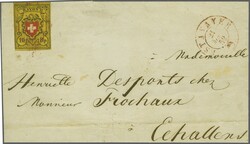 Mademoiselle
Henriette Desponts chez
Monsieur Frochaux
Echallens